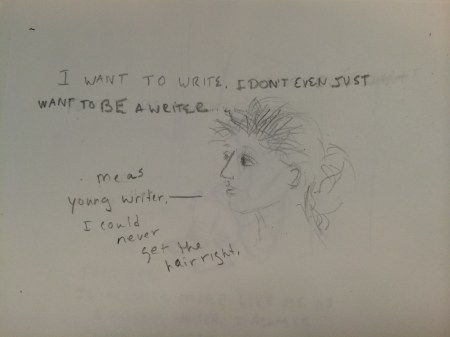 I WANT TO WRITE. I DONT EVEN JUST
WANT TO BE A WRITER
me as
young writer.
I could
never
get the
hair right.